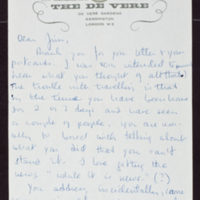 THE DE VERE
DE VERE GARDENS
KENSINGTON
LONDON W.8
Dear Jim,
Thank you for your letter & your
postcards. I was very interested to
hear what you thought of all that.
The trouble with travelling is that
by the time you have been home
for 2 or 3 days and have seen
a couple of people, you are usu-
ally so bored with telling about
what you did that you can't
stand it. I love getting the
news "while it is news." (!)
Your address, incidentally, came